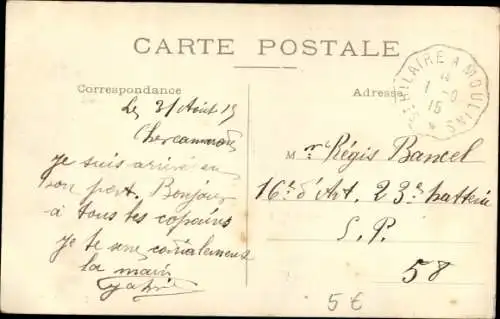 CARTE POSTALE
Correspondance
Adresse
Sᵗ HILAIRE A MOULINS
1 - 9
15
Le 31 Août 15
Cher camarade
je suis arrivé en
bon port. Bonjour
à tous tes copains
je te serre cordialement
la main
Mʳ Régis Bancel
16ᵉ d'Art. 23ᵉ batterie
S. P.
58
5 €